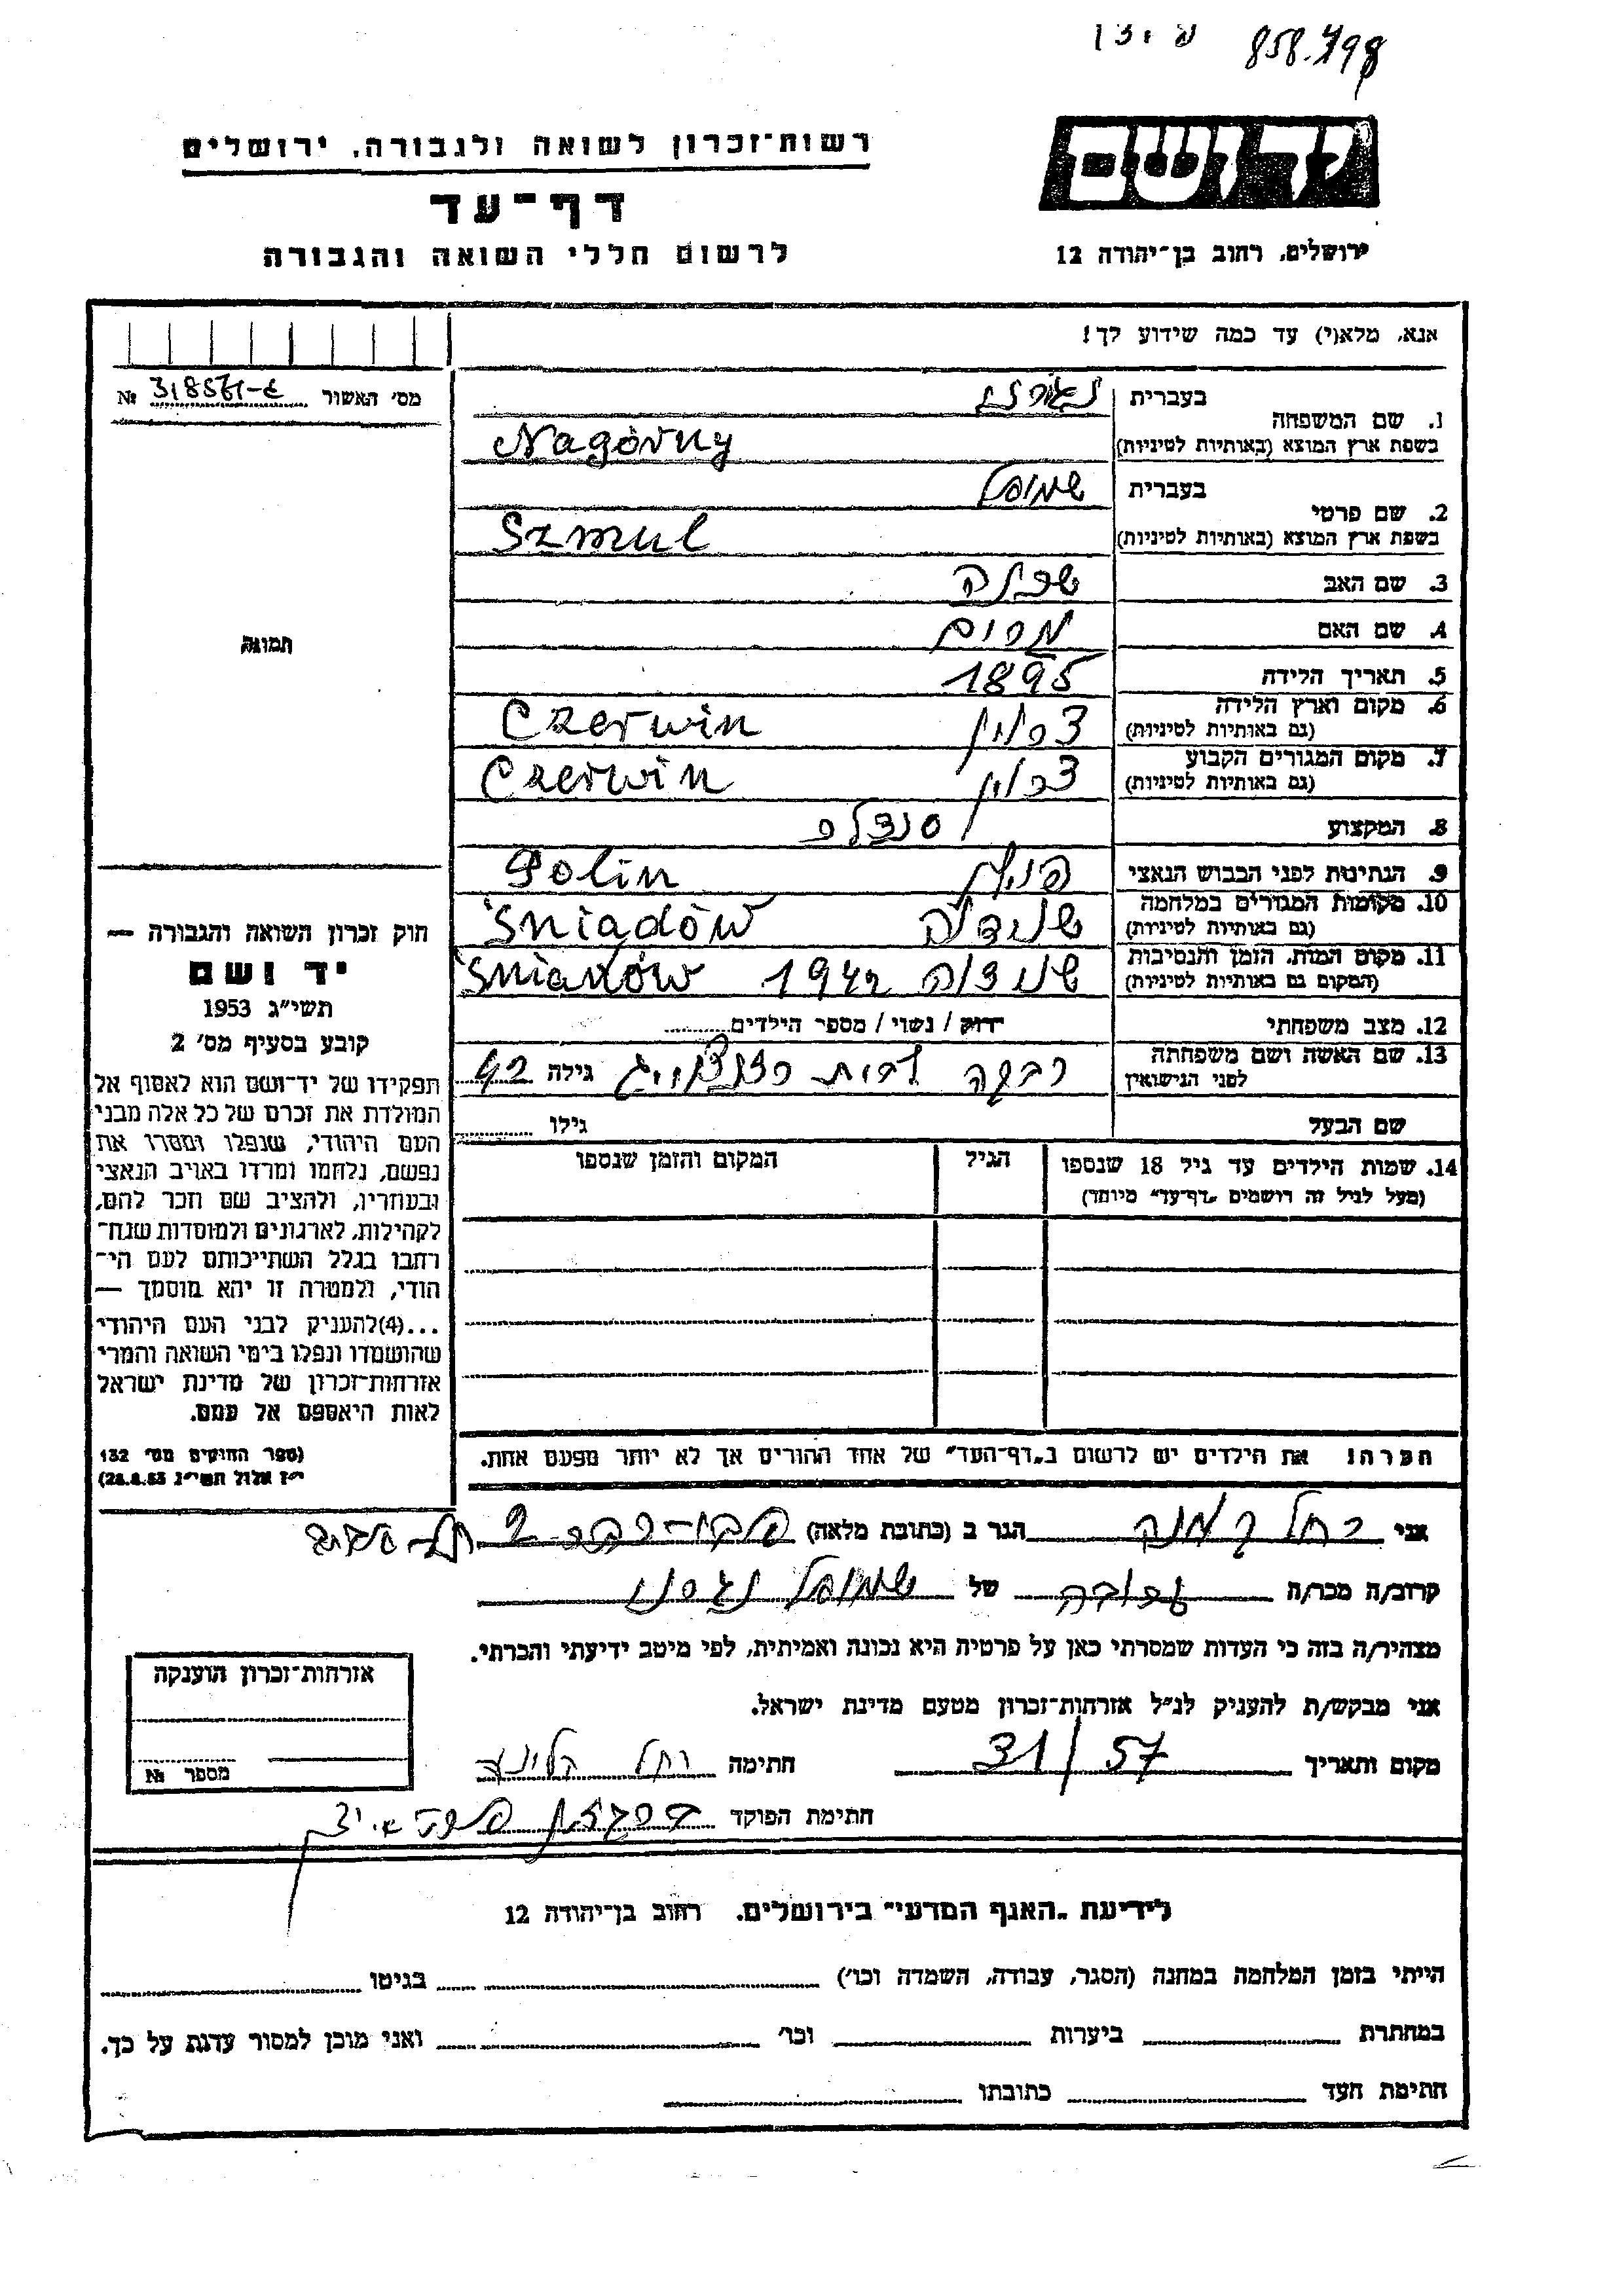 858.798
רשות־זכרון לשואה ולגבורה, ירושלים
יד ושם
דף־עד
לרשום חללי השואה והגבורה
ירושלים, רחוב בן־יהודה 12
אנא, מלא(י) עד כמה שידוע לך!
מס׳ האשור №
1. שם המשפחה
בעברית
בשפת ארץ המוצא (באותיות לטיניות) Nagórny
2. שם פרטי
בעברית שמואל
בשפת ארץ המוצא (באותיות לטיניות) Szmul
3. שם האב
4. שם האם מרים
5. תאריך הלידה 1895
6. מקום וארץ הלידה
(גם באותיות לטיניות) Czerwin
7. מקום המגורים הקבוע
(גם באותיות לטיניות) Czerwin
8. המקצוע סנדלר
9. הנתינות לפני הכבוש הנאצי פולין Polin
10. מקומות המגורים במלחמה
(גם באותיות לטיניות) Śniadów
11. מקום המות, הזמן והנסיבות
(המקום גם באותיות לטיניות) 1942 Śniadów
12. מצב משפחתי רווק / נשוי / מספר הילדים
13. שם האשה ושם משפחתה
לפני הנישואין רבקה לבית גילה 42
שם הבעל גילו
14. שמות הילדים עד גיל 18 שנספו הגיל המקום והזמן שנספו
(מעל לגיל זה רושמים „דף־עד״ מיוחד)
הערה! את הילדים יש לרשום ב„דף־העד״ של אחד ההורים אך לא יותר מפעם אחת.
תמונה
חוק זכרון השואה והגבורה —
יד ושם
תשי״ג 1953
קובע בסעיף מס׳ 2
תפקידו של יד־ושם הוא לאסוף אל
המולדת את זכרם של כל אלה מבני
העם היהודי, שנפלו ומסרו את
נפשם, נלחמו ומרדו באויב הנאצי
ובעוזריו, ולהציב שם וזכר להם,
לקהילות, לארגונים ולמוסדות שנח־
רבו בגלל השתייכותם לעם הי־
הודי, ולמטרה זו יהא מוסמך —
...(4)להעניק לבני העם היהודי
שהושמדו ונפלו בימי השואה והמרי
אזרחות־זכרון של מדינת ישראל
לאות היאספם אל עמם.
(ספר החוקים מס׳ 132
י״ז אלול תשי״ג 28.8.53)
אני רחל הגר ב (כתובת מלאה) תל־אביב
קרוב/ה מכר/ה קרובה של שמואל
מצהיר/ה בזה כי העדות שמסרתי כאן על פרטיה היא נכונה ואמיתית, לפי מיטב ידיעתי והכרתי.
אני מבקש/ת להעניק לנ״ל אזרחות־זכרון מטעם מדינת ישראל.
מקום ותאריך 31/57 חתימה רחל
חתימת הפוקד
אזרחות־זכרון הוענקה
מספר №
לידיעת „האגף המדעי״ בירושלים, רחוב בן־יהודה 12
הייתי בזמן המלחמה במחנה (הסגר, עבודה, השמדה וכו׳) בגיטו
במחתרת ביערות וכו׳ ואני מוכן למסור עדות על כך.
חתימת העד כתובתו